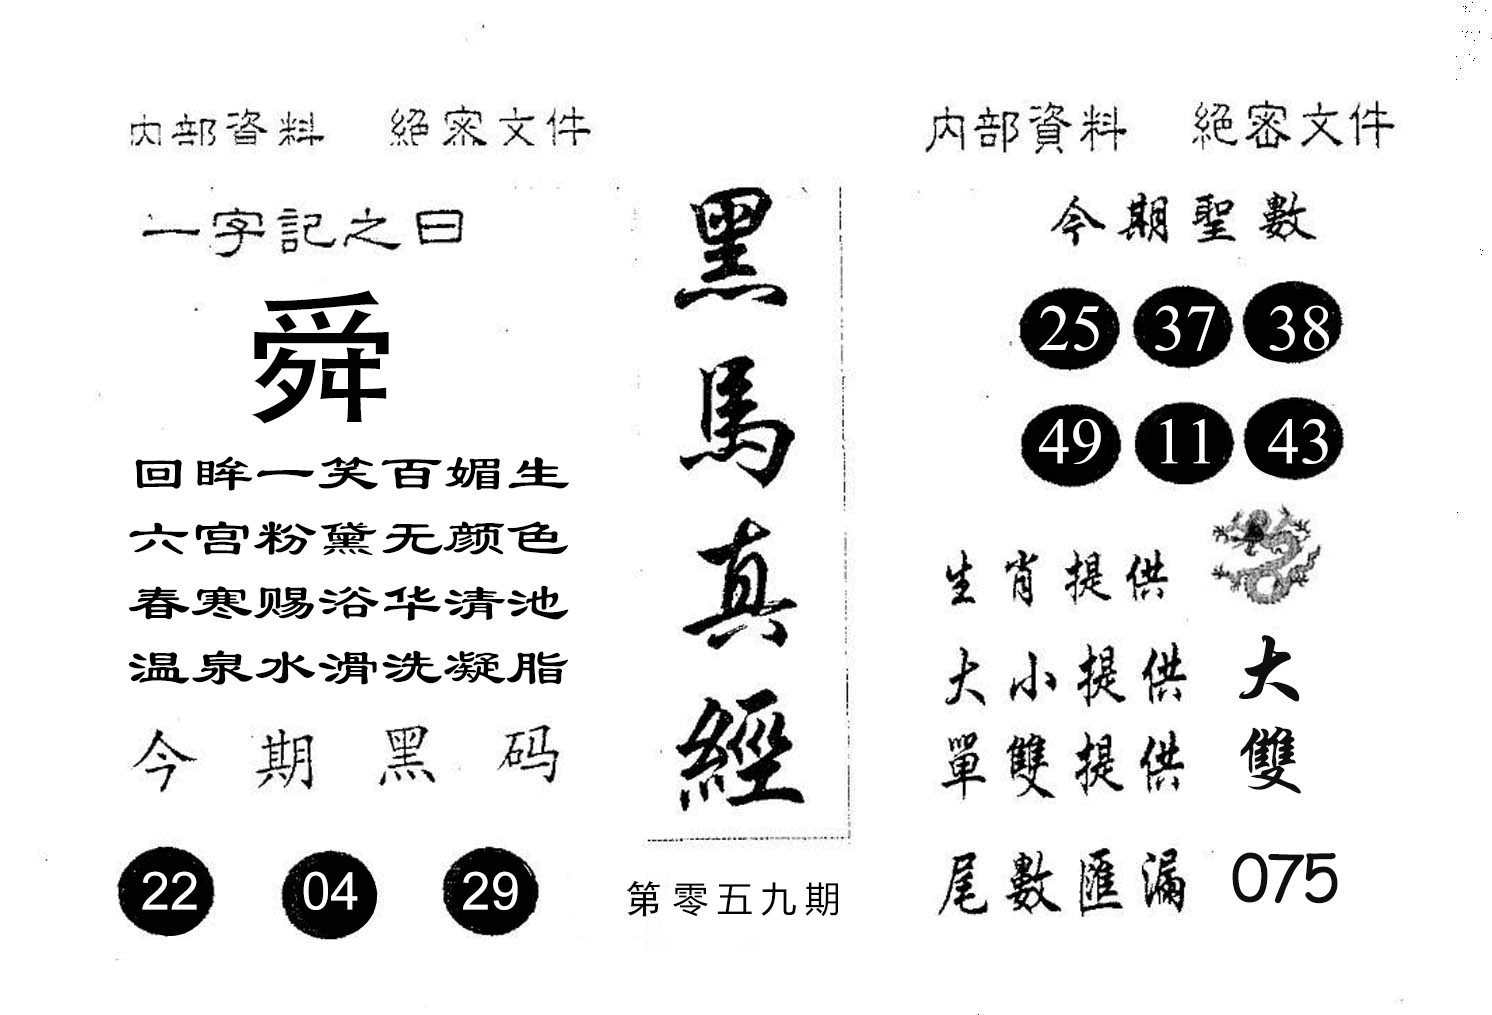 內部資料 絕密文件
一字記之曰
舜
回眸一笑百媚生
六宫粉黛无颜色
春寒赐浴华清池
温泉水滑洗凝脂
今期黑码
22 04 29
黑馬真經
第零五九期
內部資料 絕密文件
今期聖數
25 37 38
49 11 43
生肖提供
大小提供 大
單雙提供 雙
尾數匯漏 075